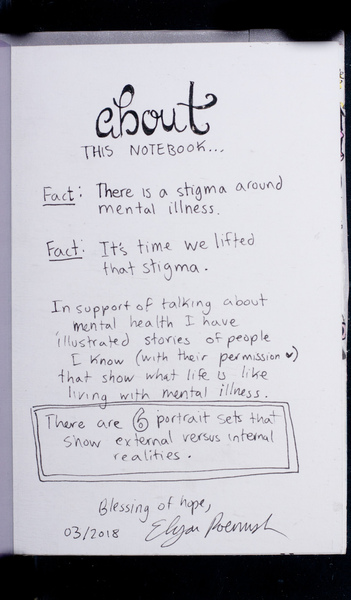 about
THIS NOTEBOOK...
Fact: There is a stigma around
mental illness.
Fact: It's time we lifted
that stigma.
In support of talking about
mental health I have
illustrated stories of people
I know (with their permission ♥)
that show what life is like
living with mental illness.
There are 6 portrait sets that
show external versus internal
realities.
Blessing of hope,
03/2018